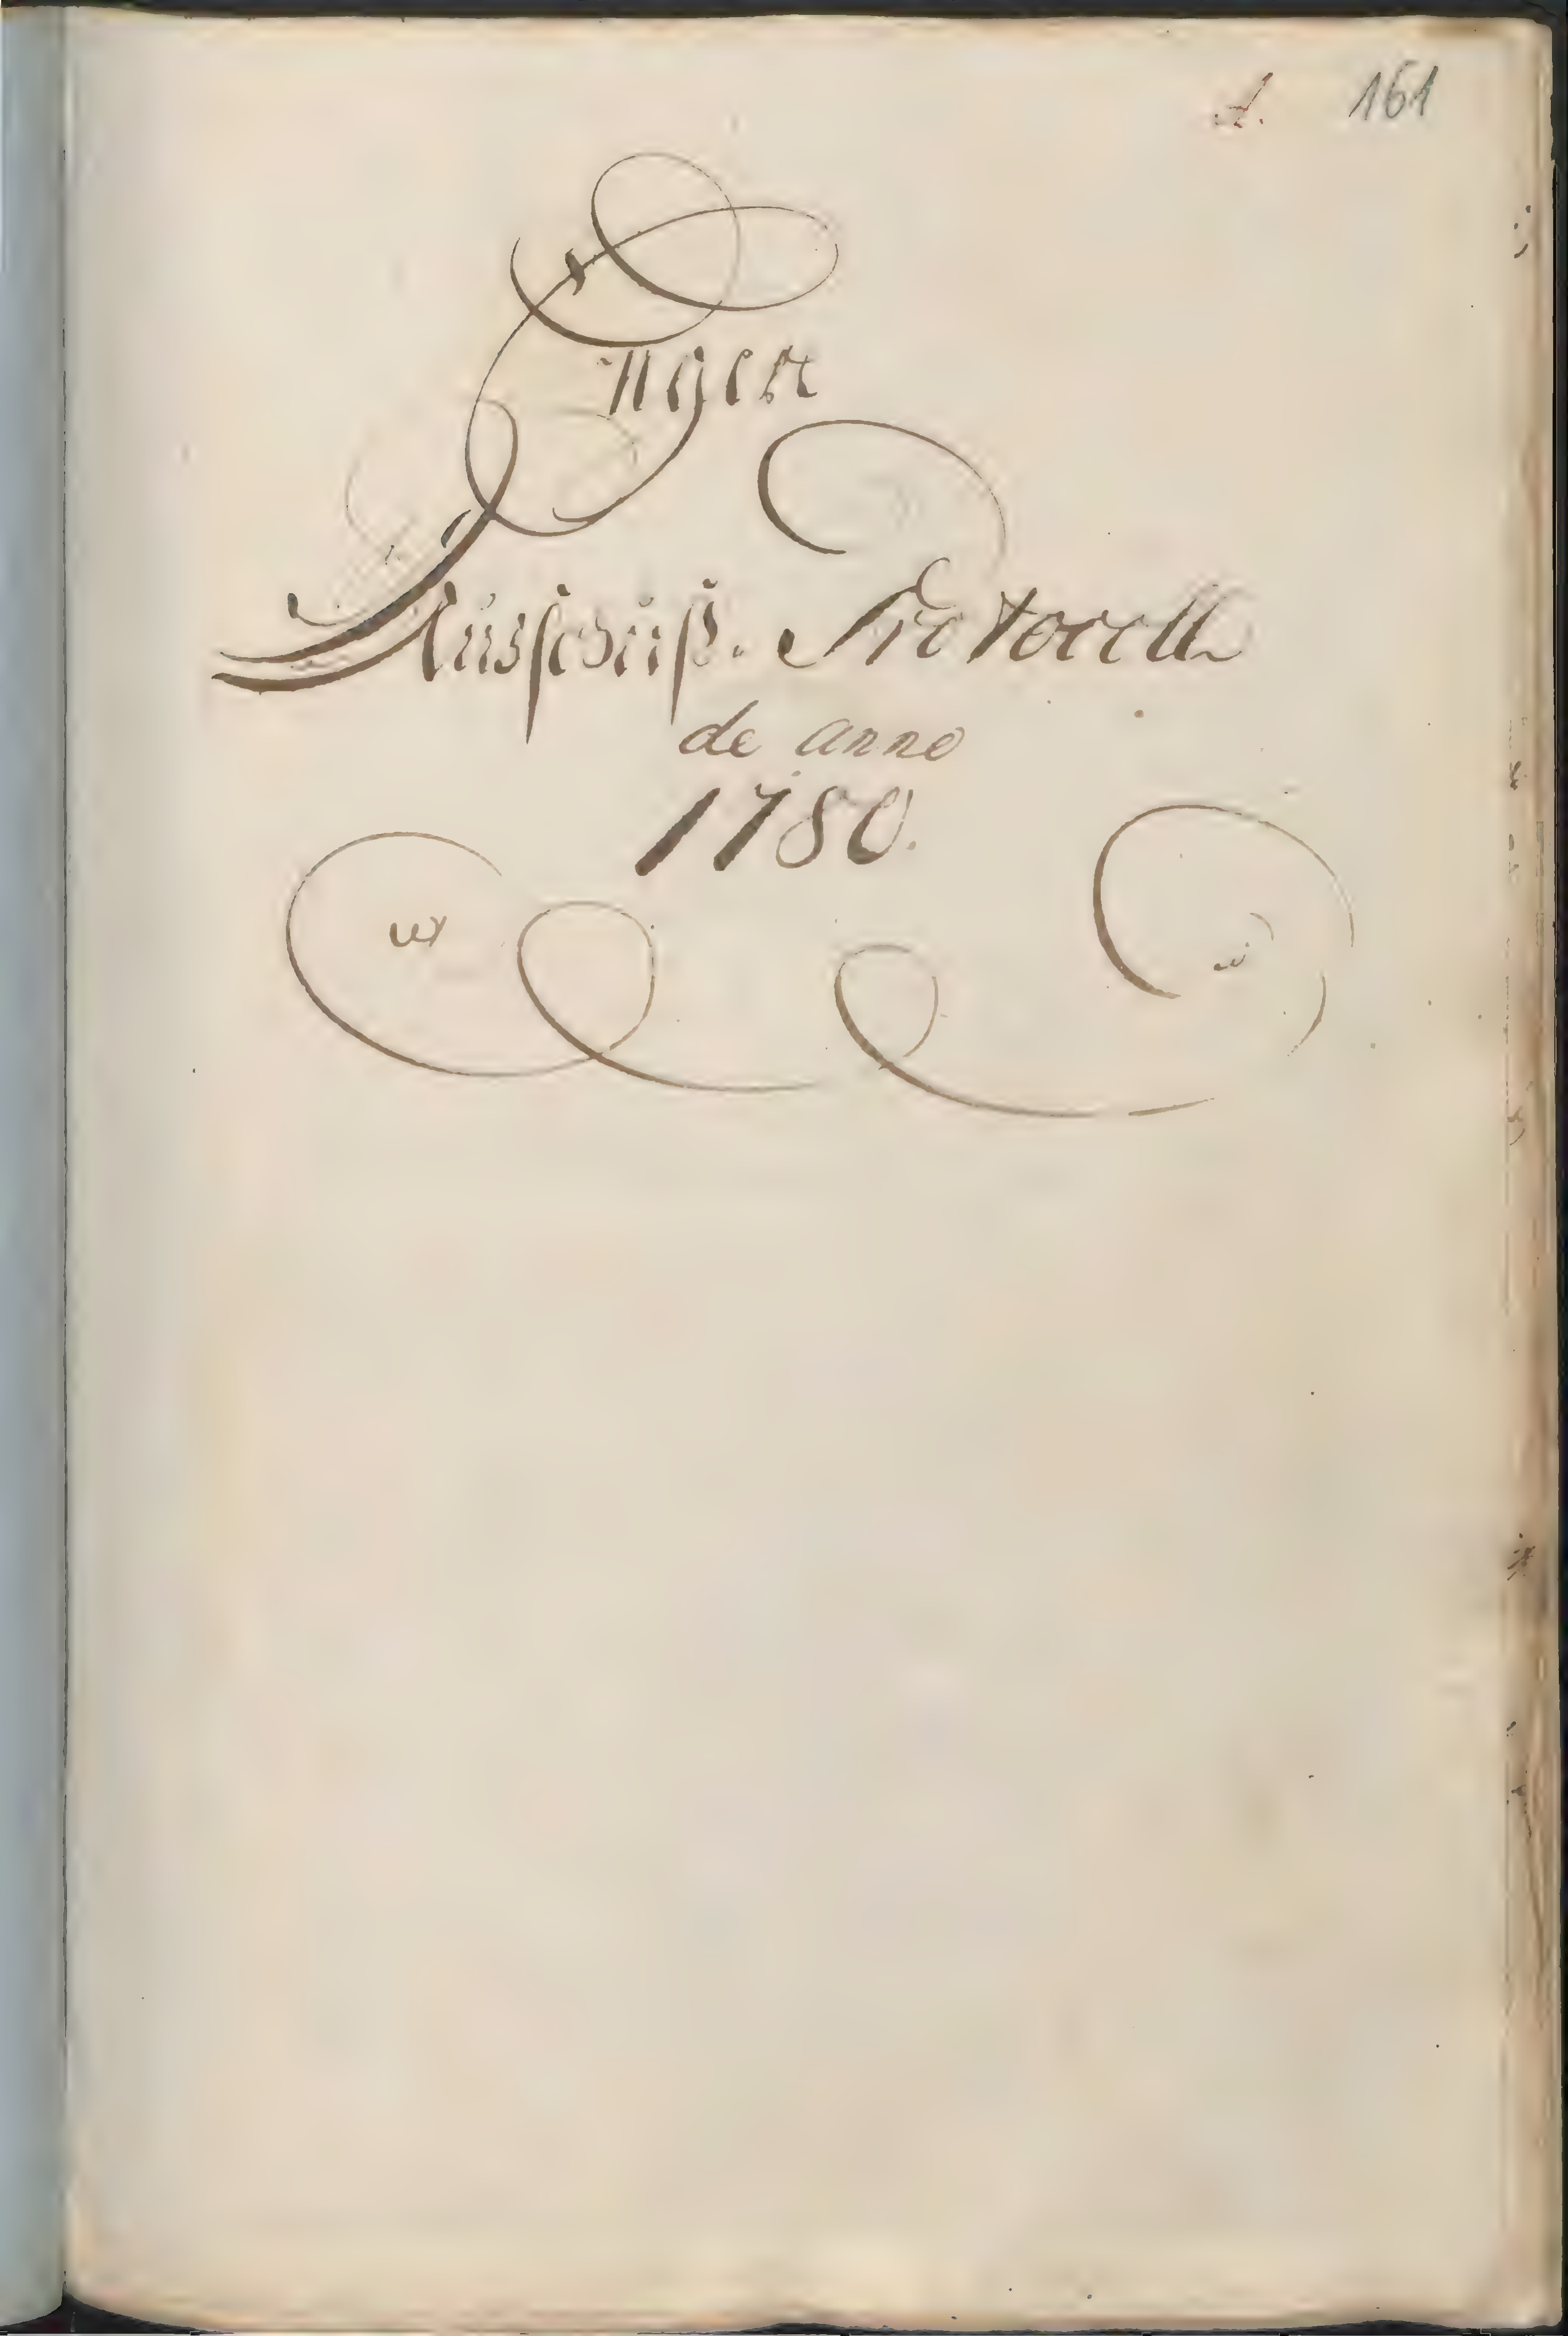 161
Enger
Ausschuß. Protocoll
de anno
1780.